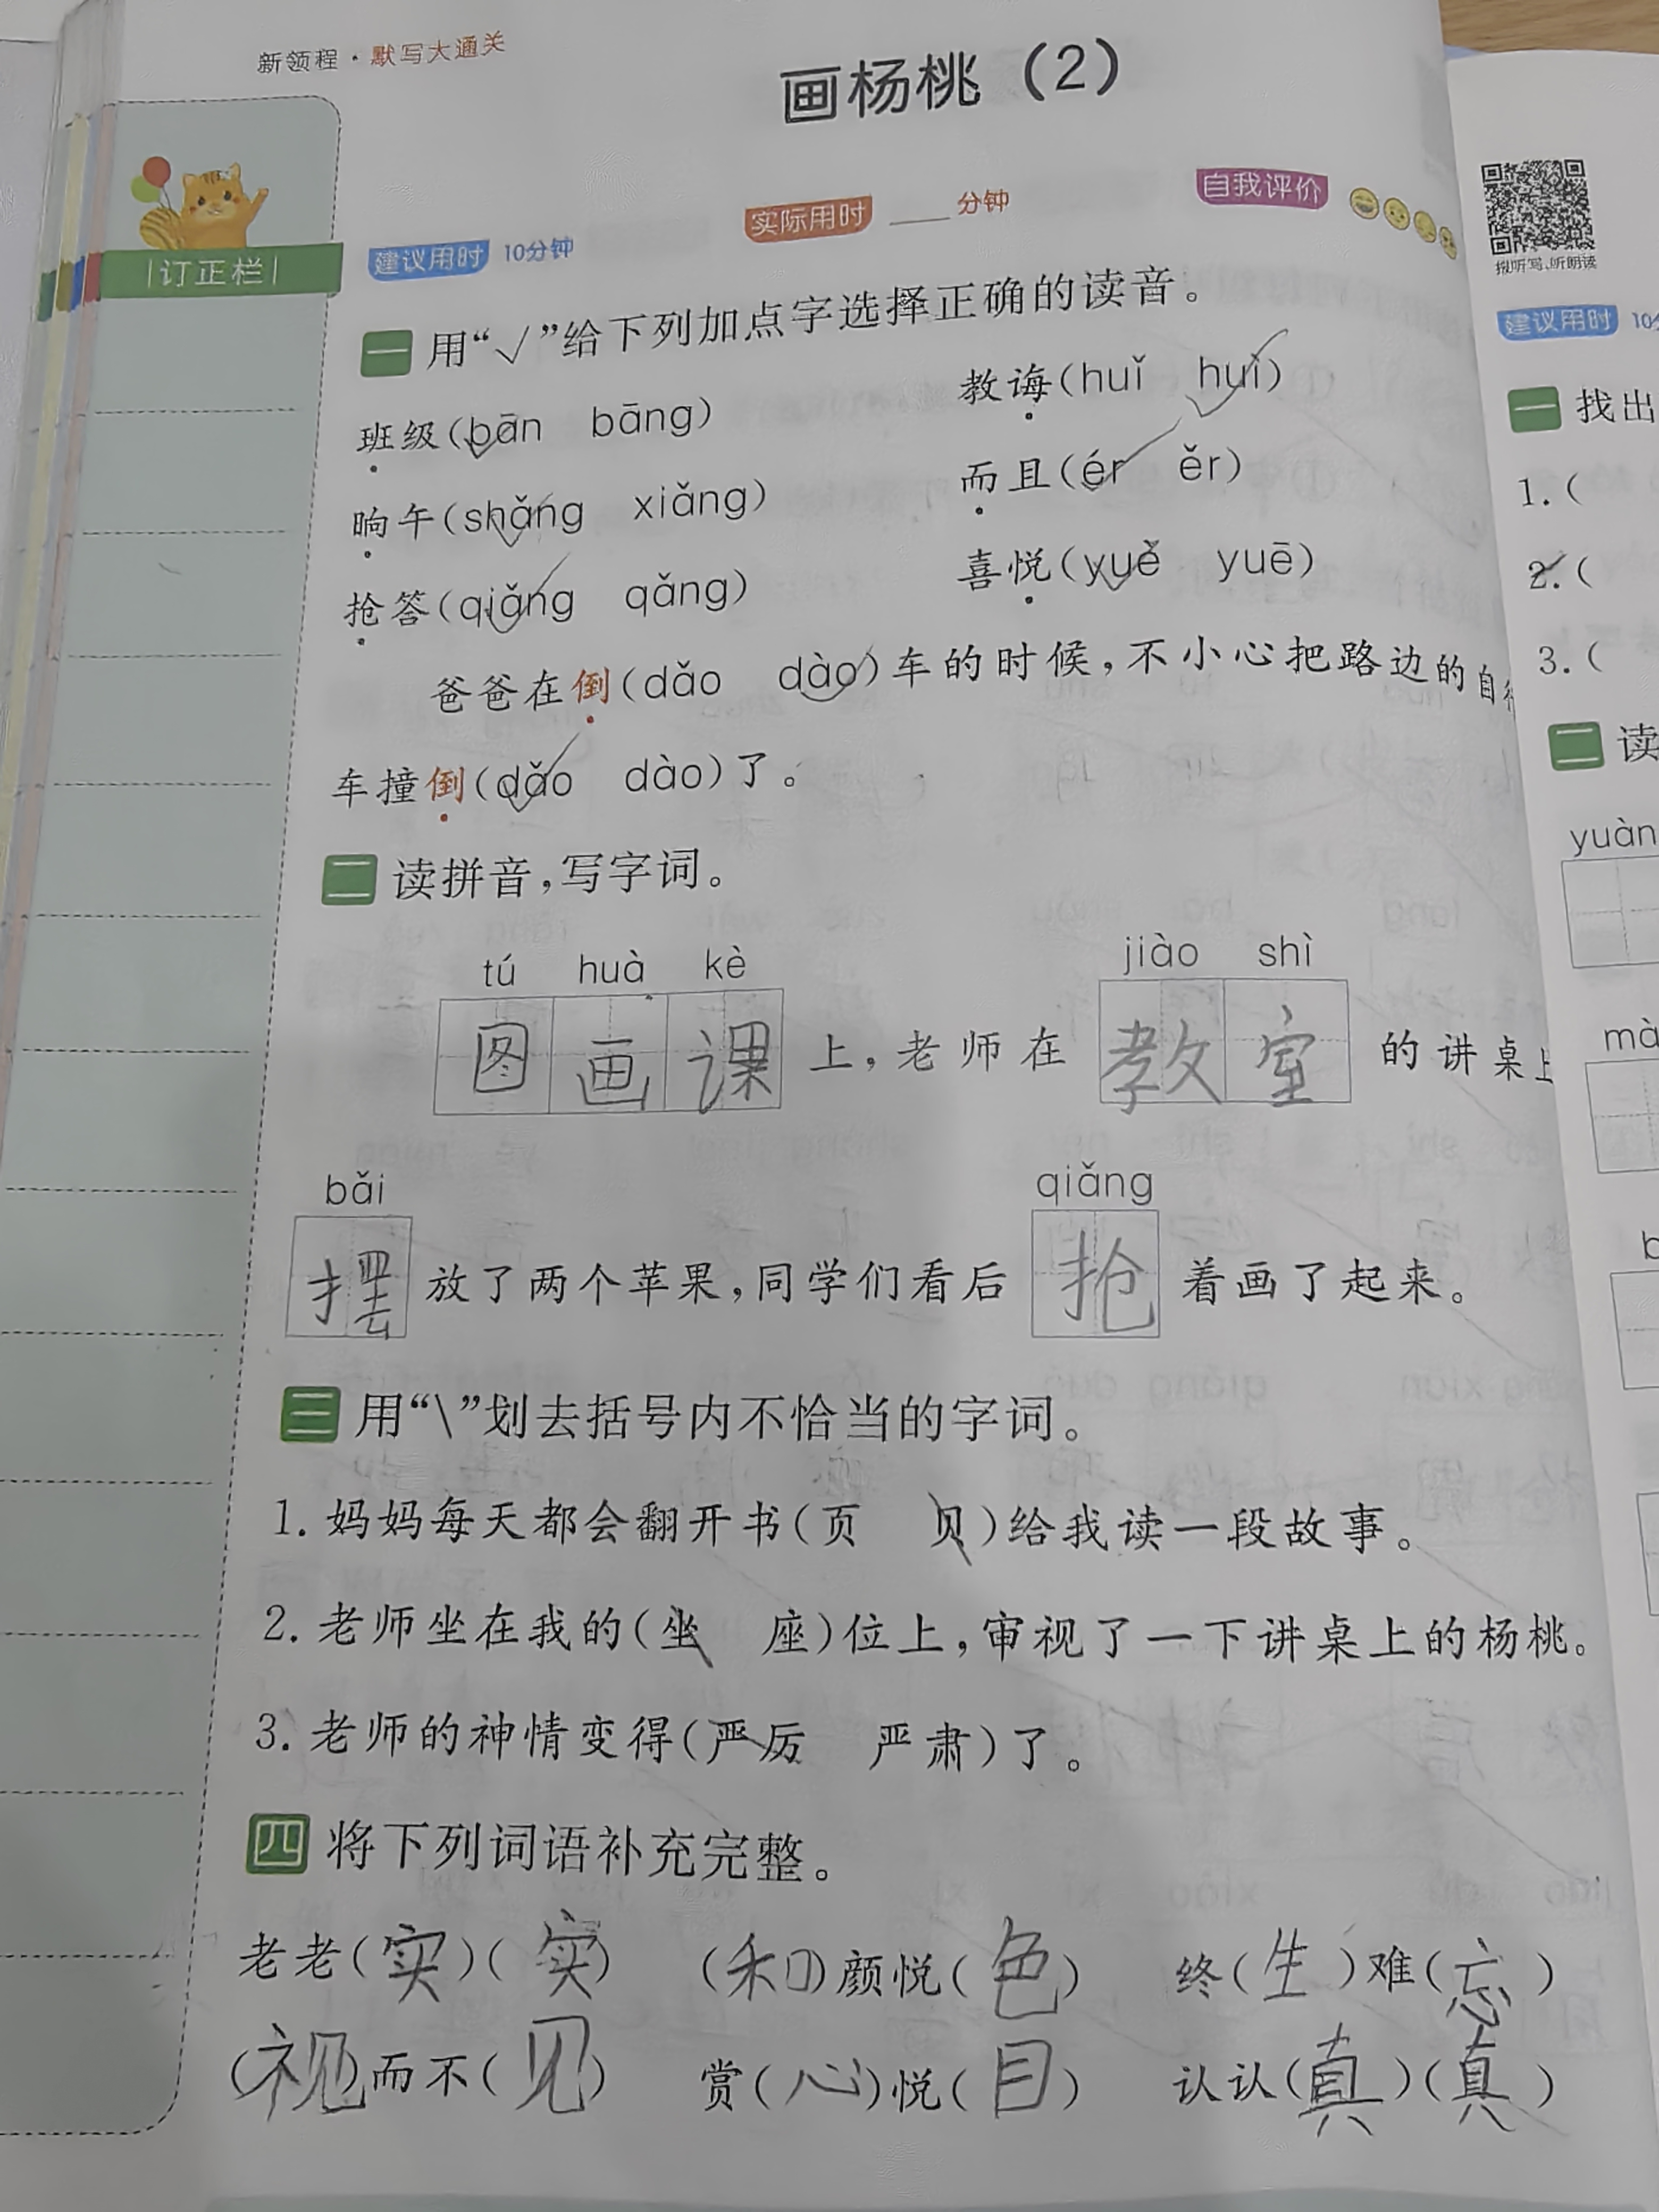 新领程·默写大通关
画杨桃（2）
建议用时 10分钟 实际用时 ____ 分钟 自我评价
订正栏
一 用“√”给下列加点字选择正确的读音。
班级(bān bāng) 教诲(huǐ huì)
晌午(shǎng xiǎng) 而且(ér ěr)
抢答(qiǎng qǎng) 喜悦(yuè yuē)
爸爸在倒(dǎo dào)车的时候,不小心把路边的自行
车撞倒(dǎo dào)了。
二 读拼音,写字词。
tú huà kè jiào shì
图画课 上,老师在 教室 的讲桌上
bǎi qiǎng
摆 放了两个苹果,同学们看后 抢 着画了起来。
三 用“\”划去括号内不恰当的字词。
1. 妈妈每天都会翻开书(页 贝)给我读一段故事。
2. 老师坐在我的(坐 座)位上,审视了一下讲桌上的杨桃。
3. 老师的神情变得(严厉 严肃)了。
四 将下列词语补充完整。
老老(实)(实) (和)颜悦(色) 终(生)难(忘)
(视)而不(见) 赏(心)悦(目) 认认(真)(真)
报听写、听朗读
建议用时 10分
一 找出
1.(
2.(
3.(
二 读
yuàn